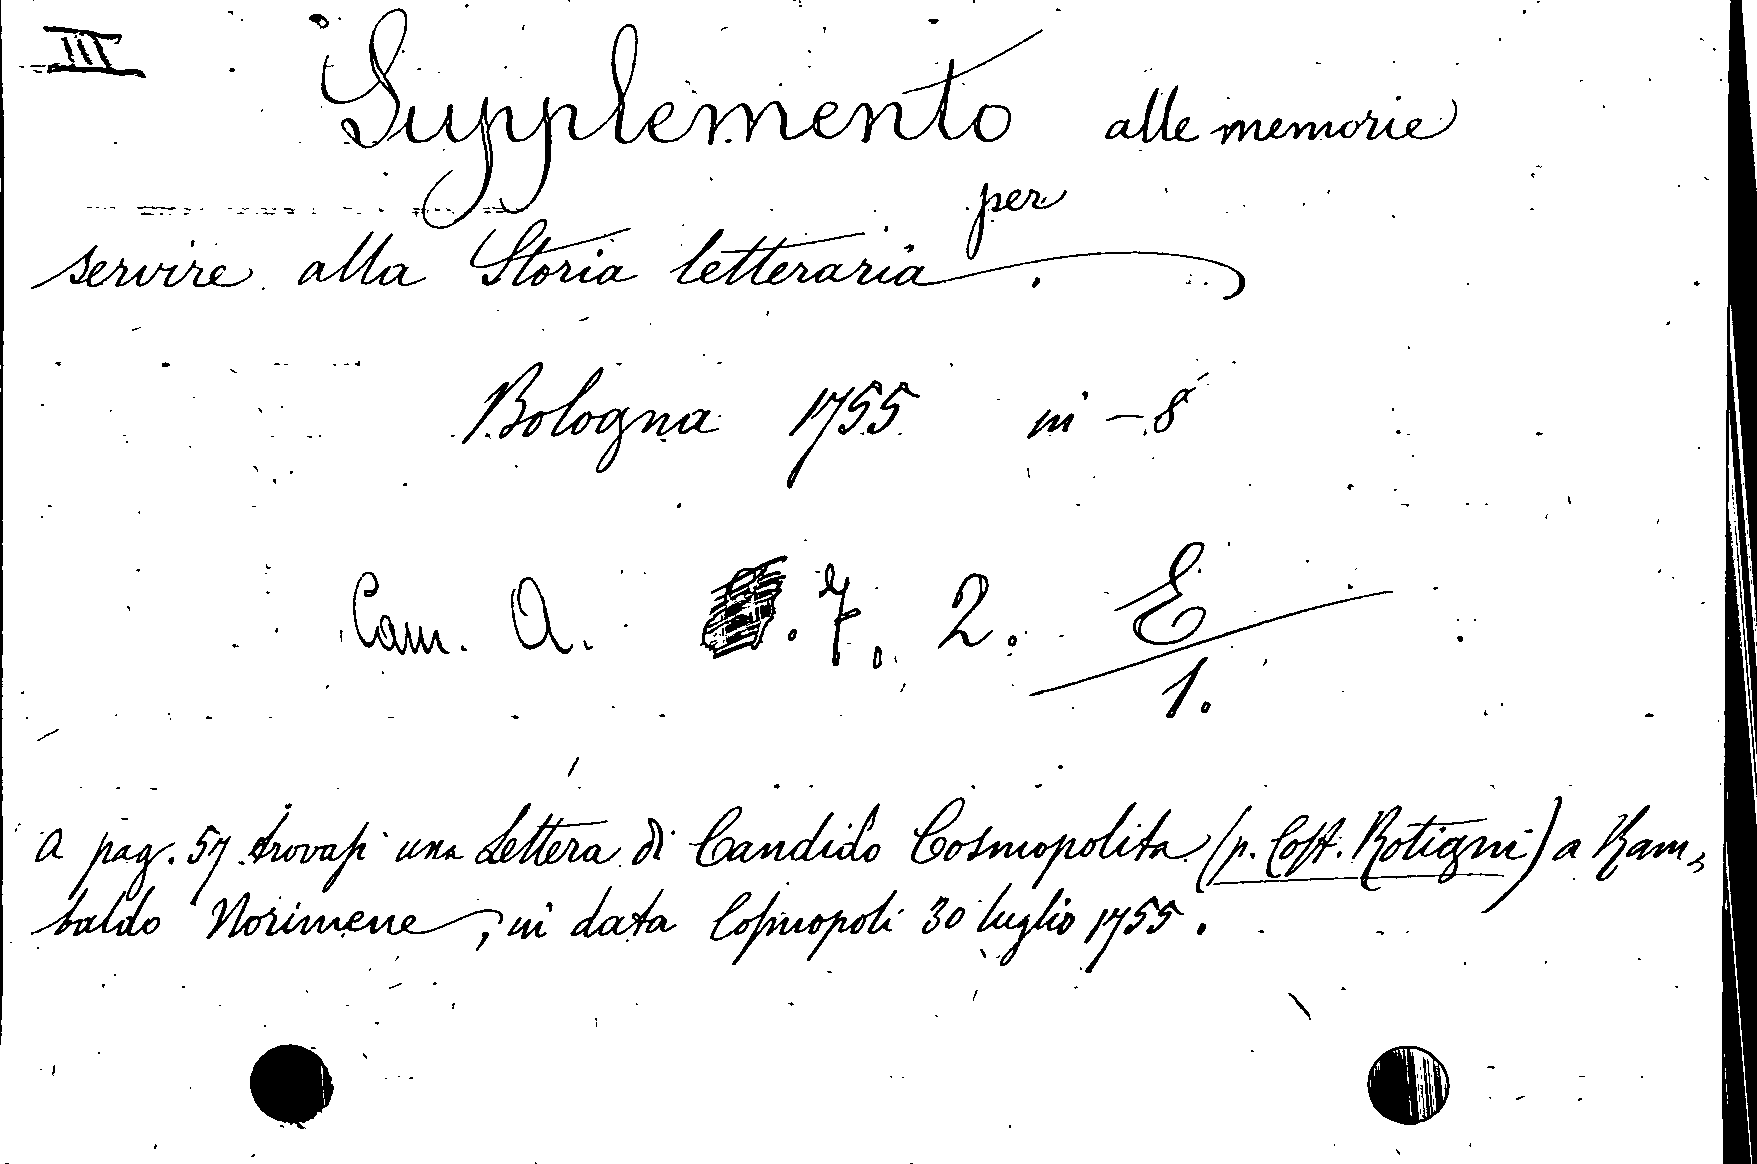 III
Supplemento alle memorie
per
servire alla Storia letteraria.
Bologna 1755 in – 8°
Cam. A. 7. 2. E/1.
A pag. 57 trovasi una Lettera di Candido Cosmopolita (p. Cost. Rotigni) a Ram,
baldo Norimene, in data Cosmopoli 30 luglio 1755.